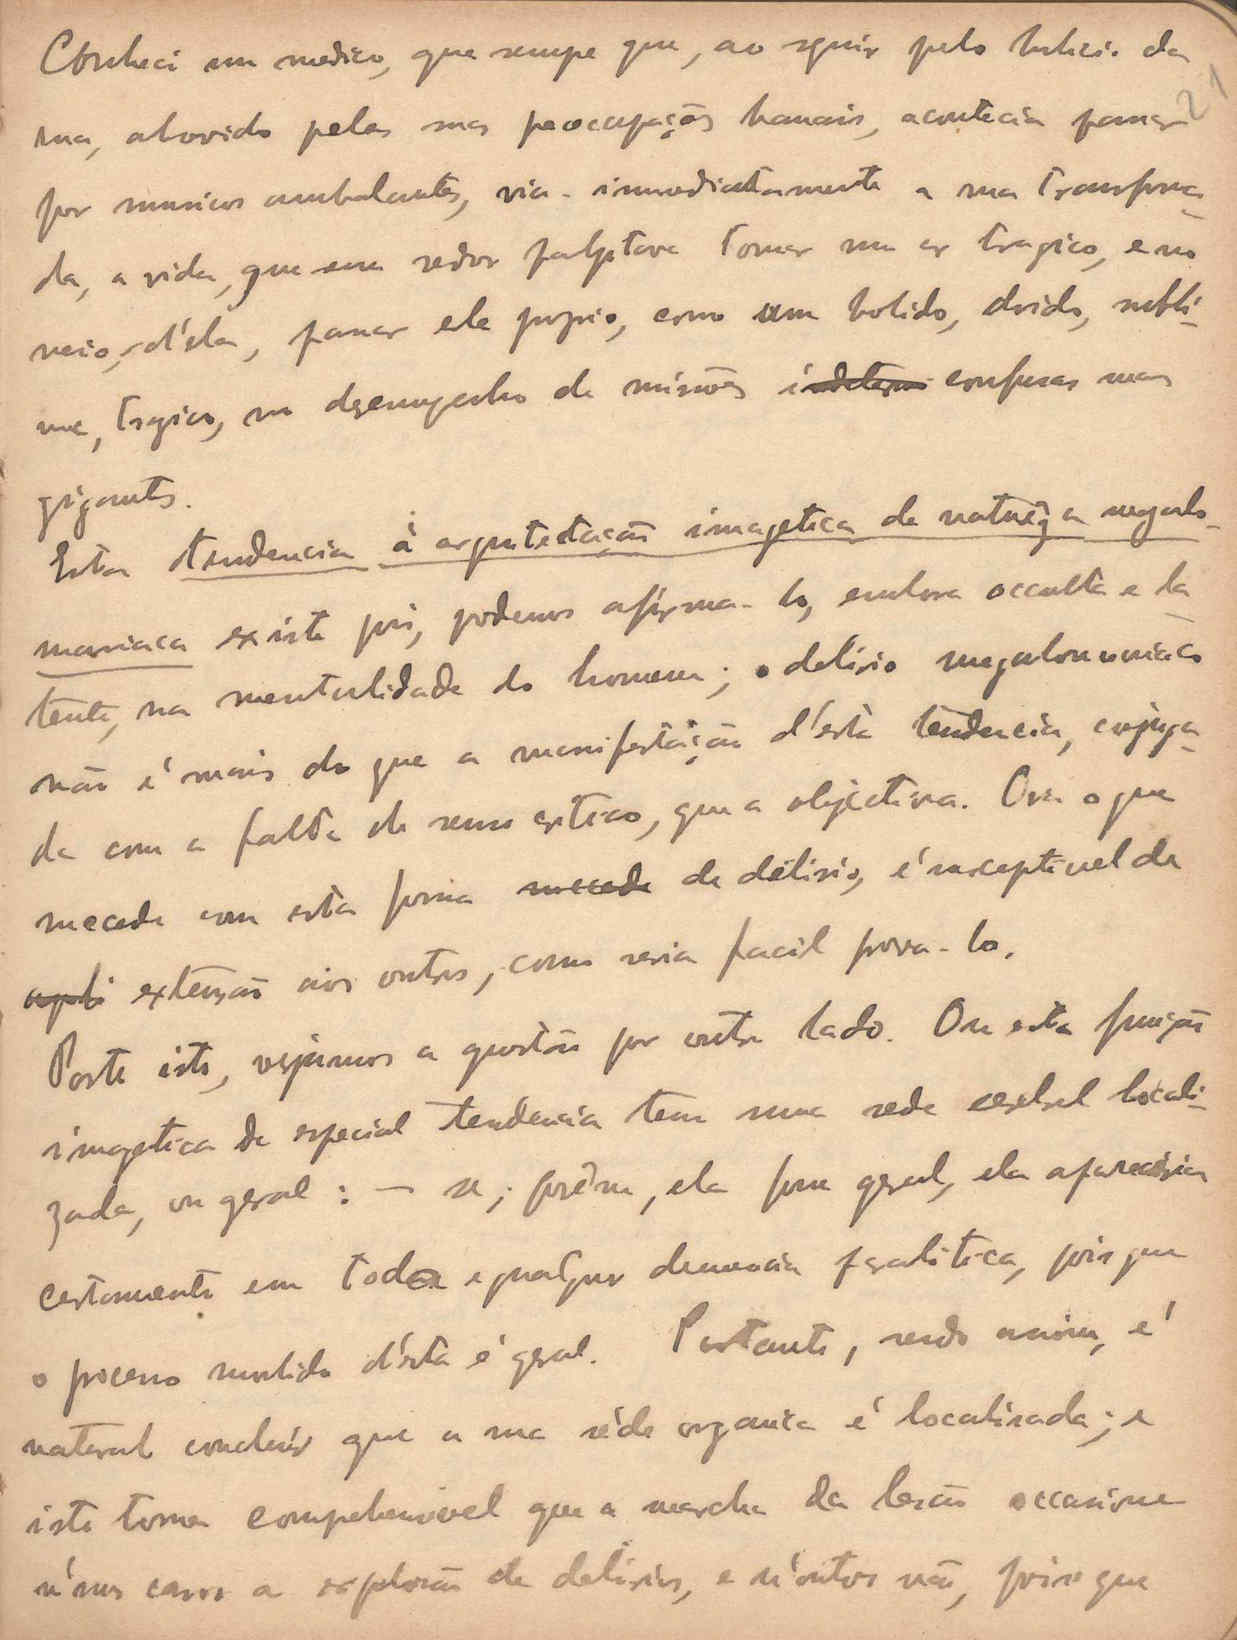 Conheci um medico, que sempre que, ao seguir pelo bulicio da
21
rua, absorvido pelas suas preoccupações banais, acontecia passar
por musicos ambulantes, via-immediatamente a rua transforma-
da, a vida, que em redor palpitava tomar um ar tragico, e no
meio, d'ésla, passar ele proprio, como um bolido, doido, subli-
me, tragico, no desempenho de missões indeterm confusas mas
gigantes.
Esta tendencia á arquitectação imagetica de naturêza megalo-
maniaca existe pois, podemos afirma-lo, embora occulta e la-
tente, na mentalidade do homem; o delirio megalomaniaco
não é mais do que a manifestação d'ésta tendencia, conjuga-
da com a falta de senso critico, que a objectiva. Ora o que
succede com esta forma succede de delirio, é susceptivel de
apli extensão aos outros, como seria facil prova-lo.
Posto isto, vejamos a questão por outro lado. Ou esta função
imagetica de especial tendencia tem uma sede cerebral locali-
zada, ou geral: — se, porêm, ela fosse geral, ela apareceria
certamente em toda e qualquer demencia paralitica, pois que
o processo morbido d'ésta é geral. Portanto, sendo assim, é
natural concluir que a sua séde organica é localisada; e
isto torna comprehensivel que a marcha da lesão occasione
n'uns casos a explosão de delirios, e n'outros não, pois que